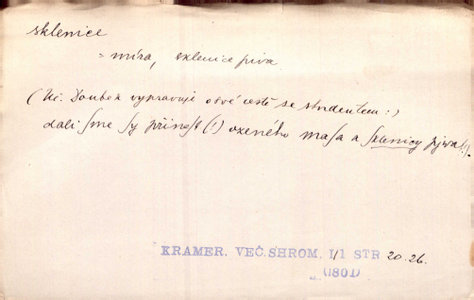 sklenice
= míra, sklenice piva
(Uč. Doubek vypravuje o své cestě se studentem:)
dali ſme ſy přineſt (!) uzeného maſa a ſklenicy pjwa
KRAMER. VEČ. SHROM. I/1 STR 20.26.
(1801)